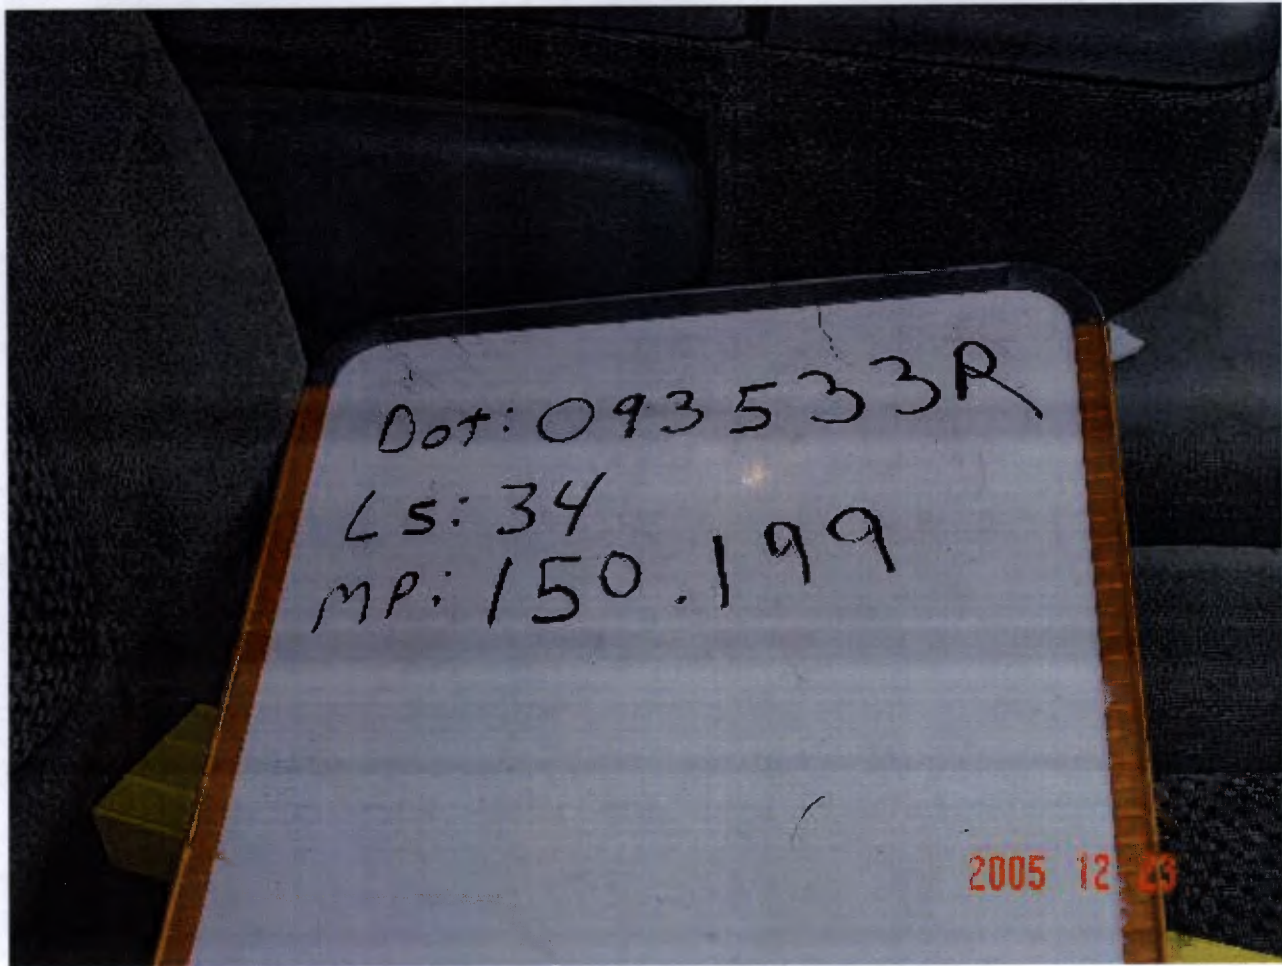 Dot: 093533R
LS: 34
MP: 150.199
2005 12 23